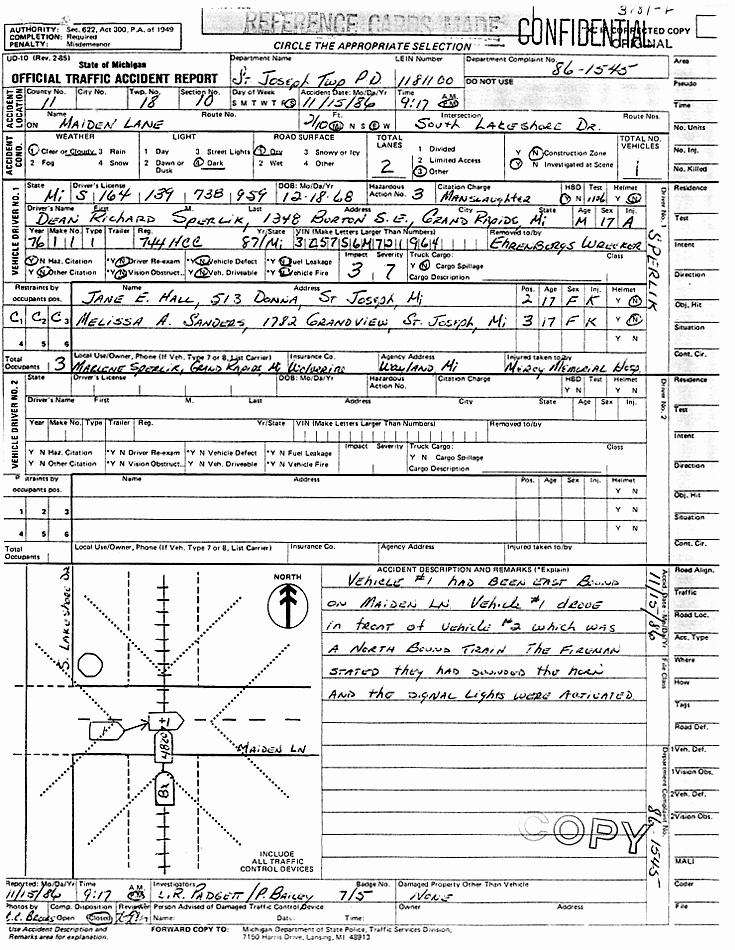 REFERENCE CARDS MADE
3181-1
CONFIDENTIAL
CORRECTED COPY
ORIGINAL
AUTHORITY: Sec. 622, Act 300, P.A. of 1949
COMPLETION: Required
PENALTY: Misdemeanor
CIRCLE THE APPROPRIATE SELECTION
UD-10 (Rev. 2-85)
State of Michigan
OFFICIAL TRAFFIC ACCIDENT REPORT
Department Name St Joseph Twp P.D.
LEIN Number 1181100
Department Complaint No. 86-1545
DO NOT USE
Area
Pseudo
ACCIDENT LOCATION
County No. 11 City No. Twp. No. 18 Section No. 10
Day of Week S M T W T F S
Accident Date: Mo/Da/Yr 11/15/86
Time 9:17 A.M. P.M.
Time
ON MAIDEN LANE Route No.
2/10 Ft. Mi. N S E W
Intersection South Lakeshore Dr. Route Nos.
No. Units
ACCIDENT COND.
WEATHER LIGHT ROAD SURFACE TOTAL LANES TOTAL NO. VEHICLES
1 Clear or Cloudy 3 Rain 1 Day 3 Street Lights 1 Dry 3 Snowy or Icy 1 Divided Y N Construction Zone No. Inj.
2 Fog 4 Snow 2 Dawn or Dusk 4 Dark 2 Wet 4 Other 2 2 Limited Access 3 Other Y N Investigated at Scene 1 No. Killed
VEHICLE DRIVER NO. 1
State Mi Driver's License S 164 139 738 959 DOB: Mo/Da/Yr 12-18-68 Hazardous Action No. 3 Citation Charge MANSLAUGHTER HBD Y N Test Helmet Y N
Residence
Driver's Name First M. Last Address City State Age Sex Inj.
DEAN RICHARD SPERLIK, 1348 BURTON S.E., GRAND RAPIDS, Mi M 17 A
Driver No. 1
SPERLIK
Test
Year 76 Make No. 11 Type 1 Trailer Reg. 744 HCC Yr/State 87/Mi VIN (Make Letters Larger Than Numbers) 3D57S6M721964 Removed to/by EHRENBERGS WRECKER
Intent
Y N Haz. Citation *Y N Driver Re-exam *Y N Vehicle Defect *Y N Fuel Leakage Impact 3 Severity 7 Truck Cargo: Y N Cargo Spillage Class
Y N Other Citation *Y N Vision Obstruct... Y N Veh. Driveable *Y N Vehicle Fire Cargo Description
Direction
Restraints by occupants pos. Name Address Pos. Age Sex Inj. Helmet
JANE E. HALL, 513 DONNA, ST JOSEPH, Mi 2 17 F K Y N
Obj. Hit
C1 C2 C3 MELISSA A. SANDERS, 1782 GRANDVIEW, ST. JOSEPH, Mi 3 17 F K Y N
Situation
4 5 6 Y N
Cont. Cir.
Total Occupants 3 Local Use/Owner, Phone (If Veh. Type 7 or 8, List Carrier) Insurance Co. Agency Address Injured taken to/by
MARLENE SPERLIK, GRAND RAPIDS Mi Wolverine WAYLAND, Mi MERCY MEMORIAL HOSP.
VEHICLE DRIVER NO. 2
State Driver's License DOB: Mo/Da/Yr Hazardous Action No. Citation Charge HBD Test Helmet
Y N Y N
Residence
Driver's Name First M. Last Address City State Age Sex Inj.
Driver No. 2
Test
Year Make No. Type Trailer Reg. Yr/State VIN (Make Letters Larger Than Numbers) Removed to/by
Intent
Y N Haz. Citation *Y N Driver Re-exam *Y N Vehicle Defect *Y N Fuel Leakage Impact Severity Truck Cargo: Y N Cargo Spillage Class
Y N Other Citation *Y N Vision Obstruct... Y N Veh. Driveable *Y N Vehicle Fire Cargo Description
Direction
occupants pos. Name Address Pos. Age Sex Inj. Helmet
Y N
Obj. Hit
1 2 3 Y N
Situation
4 5 6 Y N
Cont. Cir.
Total Occupants Local Use/Owner, Phone (If Veh. Type 7 or 8, List Carrier) Insurance Co. Agency Address Injured taken to/by
S. Lakeshore Dr
NORTH
4820
MAIDEN LN
INCLUDE
ALL TRAFFIC
CONTROL DEVICES
ACCIDENT DESCRIPTION AND REMARKS (*Explain)
VEHICLE #1 HAD BEEN EAST BOUND
ON MAIDEN LN. VEHICLE #1 DROVE
in front of vehicle #2 which was
A NORTH BOUND TRAIN THE FIREMAN
STATED they HAD SOUNDED the HORN
AND the SIGNAL Lights WERE ACTIVATED.
COPY
Accd. Date - Mo/Da/Yr
11/15/86
File Class
Department Complaint No.
86-1545
Road Align.
Traffic
Road Loc.
Acc. Type
Where
How
Tags
Road Def.
1Veh. Def.
1Vision Obs.
2Veh. Def.
2Vision Obs.
MALI
Coder
File
Reported: Mo/Da/Yr 11/15/86 Time 9:17 A.M. P.M. Investigators L.R. PADGETT / P. BAILEY Badge No. 7/5 Damaged Property Other Than Vehicle NONE
Photos by Comp. Disposition Open Closed Reviewer Person Advised of Damaged Traffic Control Device Owner Address
Name: Date: Time:
Use Accident Description and
Remarks area for explanation.
FORWARD COPY TO: Michigan Department of State Police, Traffic Services Division,
7150 Harris Drive, Lansing, MI 48913